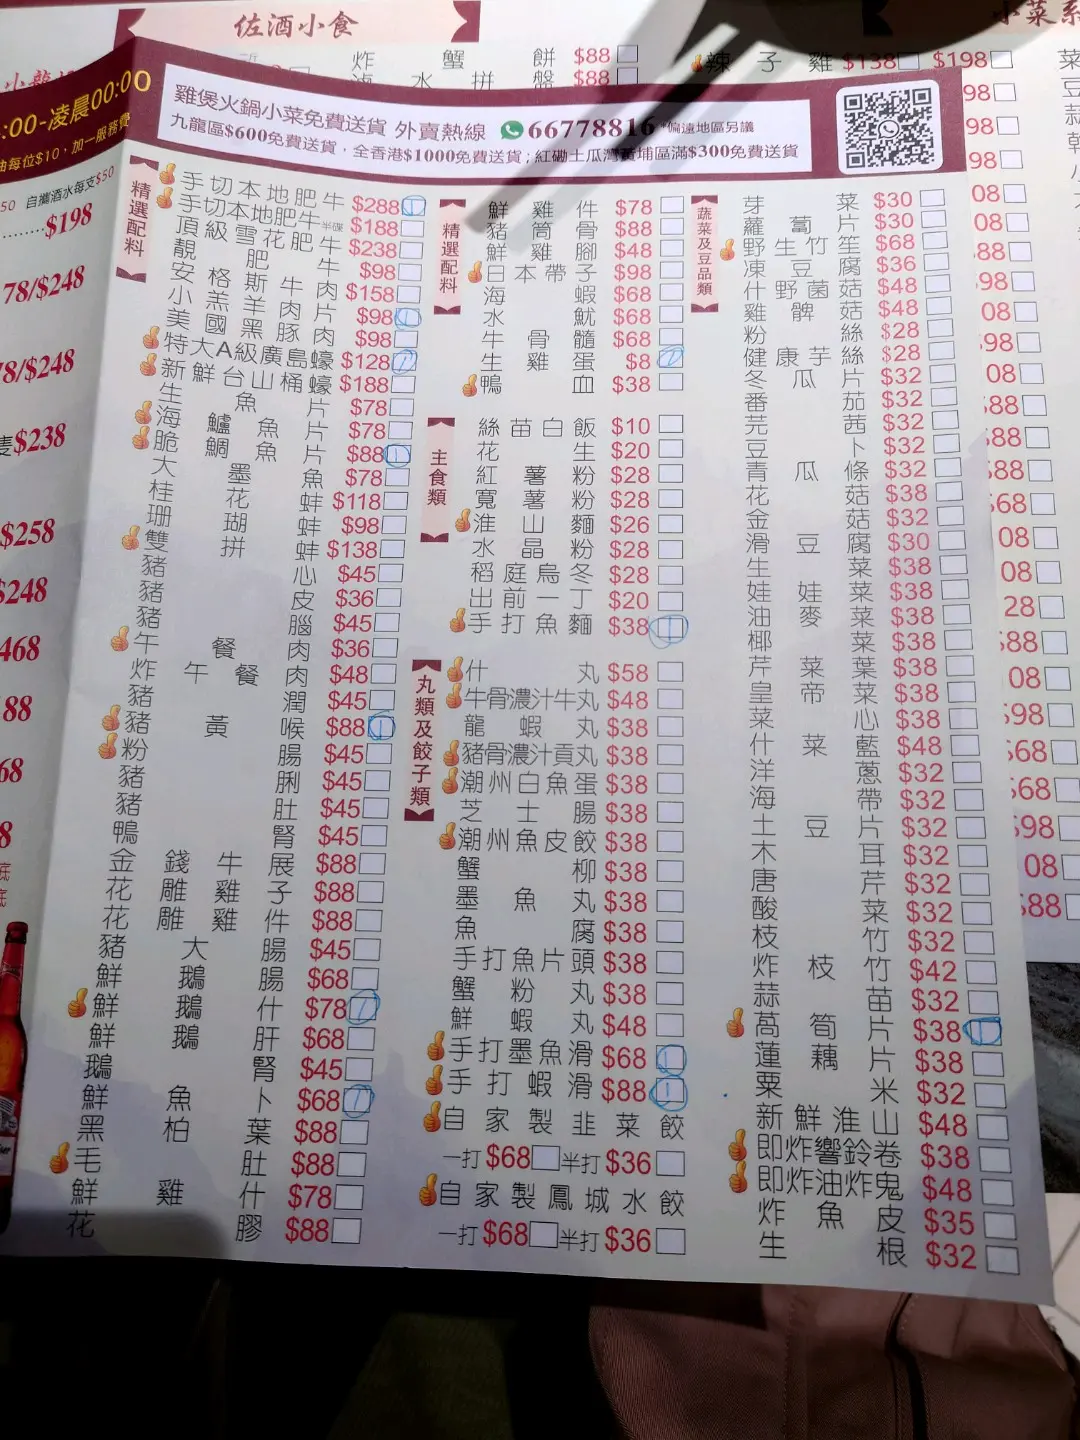 佐酒小食
小菜系
炸蟹餅 $88
滷水拼盤 $88
辣子雞 $138 $198
:00-凌晨00:00
油每位$10，加一服務費
自攜酒水每支$50
$198
78/$248
78/$248
隻$238
$258
$248
468
88
68
8
雞煲火鍋小菜免費送貨 外賣熱線 66778816 *偏遠地區另議
九龍區$600免費送貨，全香港$1000免費送貨；紅磡土瓜灣黃埔區滿$300免費送貨
精選配料
手切本地肥牛 $288 1
手切本地肥牛 半碟 $188
頂級雪花肥牛 $238
靚肥牛 $98
安格斯牛肉片 $158
小羔羊肉 $98
美國黑豚肉 $98
特大A級廣島蠔 $128
新鮮台山桶蠔 $188
生魚片 $78
海鱸魚片 $78
脆鯛魚片 $88 1
大墨魚 $78
桂花蚌 $118
珊瑚蚌 $98
雙拼蚌 $138
豬心 $45
豬皮 $36
豬腦 $45
午餐肉 $36
炸午餐肉 $48
豬潤 $45
豬黃喉 $88 1
粉腸 $45
豬脷 $45
豬肚 $45
鴨腎 $45
金錢牛展 $88
花雕雞子 $88
花雕雞件 $88
豬大腸 $45
鮮鵝腸 $68
鮮鵝什 $78 1
鮮鵝肝 $68
鵝腎 $45
鮮魚卜 $68 1
黑柏葉 $88
毛肚 $88
鮮雞什 $78
花膠 $88
精選配料
鮮雞件 $78
豬筒骨 $88
鮮雞腳 $48
日本帶子 $98
海蝦 $68
水魷 $68
牛骨髓 $68
生雞蛋 $8
鴨血 $38
主食類
絲苗白飯 $10
花生 $20
紅薯粉 $28
寬薯粉 $28
淮山麵 $26
水晶粉 $28
稻庭烏冬 $28
出前一丁 $20
手打魚麵 $38 1
丸類及餃子類
什丸 $58
牛骨濃汁牛丸 $48
龍蝦丸 $38
豬骨濃汁貢丸 $38
潮州白魚蛋 $38
芝士腸 $38
潮州魚皮餃 $38
蟹柳 $38
墨魚丸 $38
魚腐 $38
手打魚片頭 $38
蟹粉丸 $38
鮮蝦丸 $48
手打墨魚滑 $68 1
手打蝦滑 $88 1
自家製韭菜餃
一打 $68 半打 $36
自家製鳳城水餃
一打 $68 半打 $36
蔬菜及豆品類
芽菜 $30
蘿蔔片 $30
野生竹笙 $68
凍豆腐 $36
什野菌菇 $48
雞髀菇 $48
粉絲 $28
健康芋絲 $28
冬瓜片 $32
番茄 $32
芫茜 $32
豆卜 $32
青瓜條 $32
花菇 $38
金菇 $32
滑豆腐 $30
生菜 $38
娃娃菜 $38
油麥菜 $38
椰菜 $38
芹菜葉 $38
皇帝菜 $38
菜心 $38
什菜藍 $48
洋蔥 $32
海帶 $32
土豆片 $32
木耳 $32
唐芹 $32
酸菜 $32
枝竹 $32
炸枝竹 $42
蒜苗 $32
萵筍片 $38 1
蓮藕片 $38
粟米 $32
新鮮淮山 $48
即炸響鈴卷 $38
即炸油炸鬼 $48
炸魚皮 $35
生根 $32